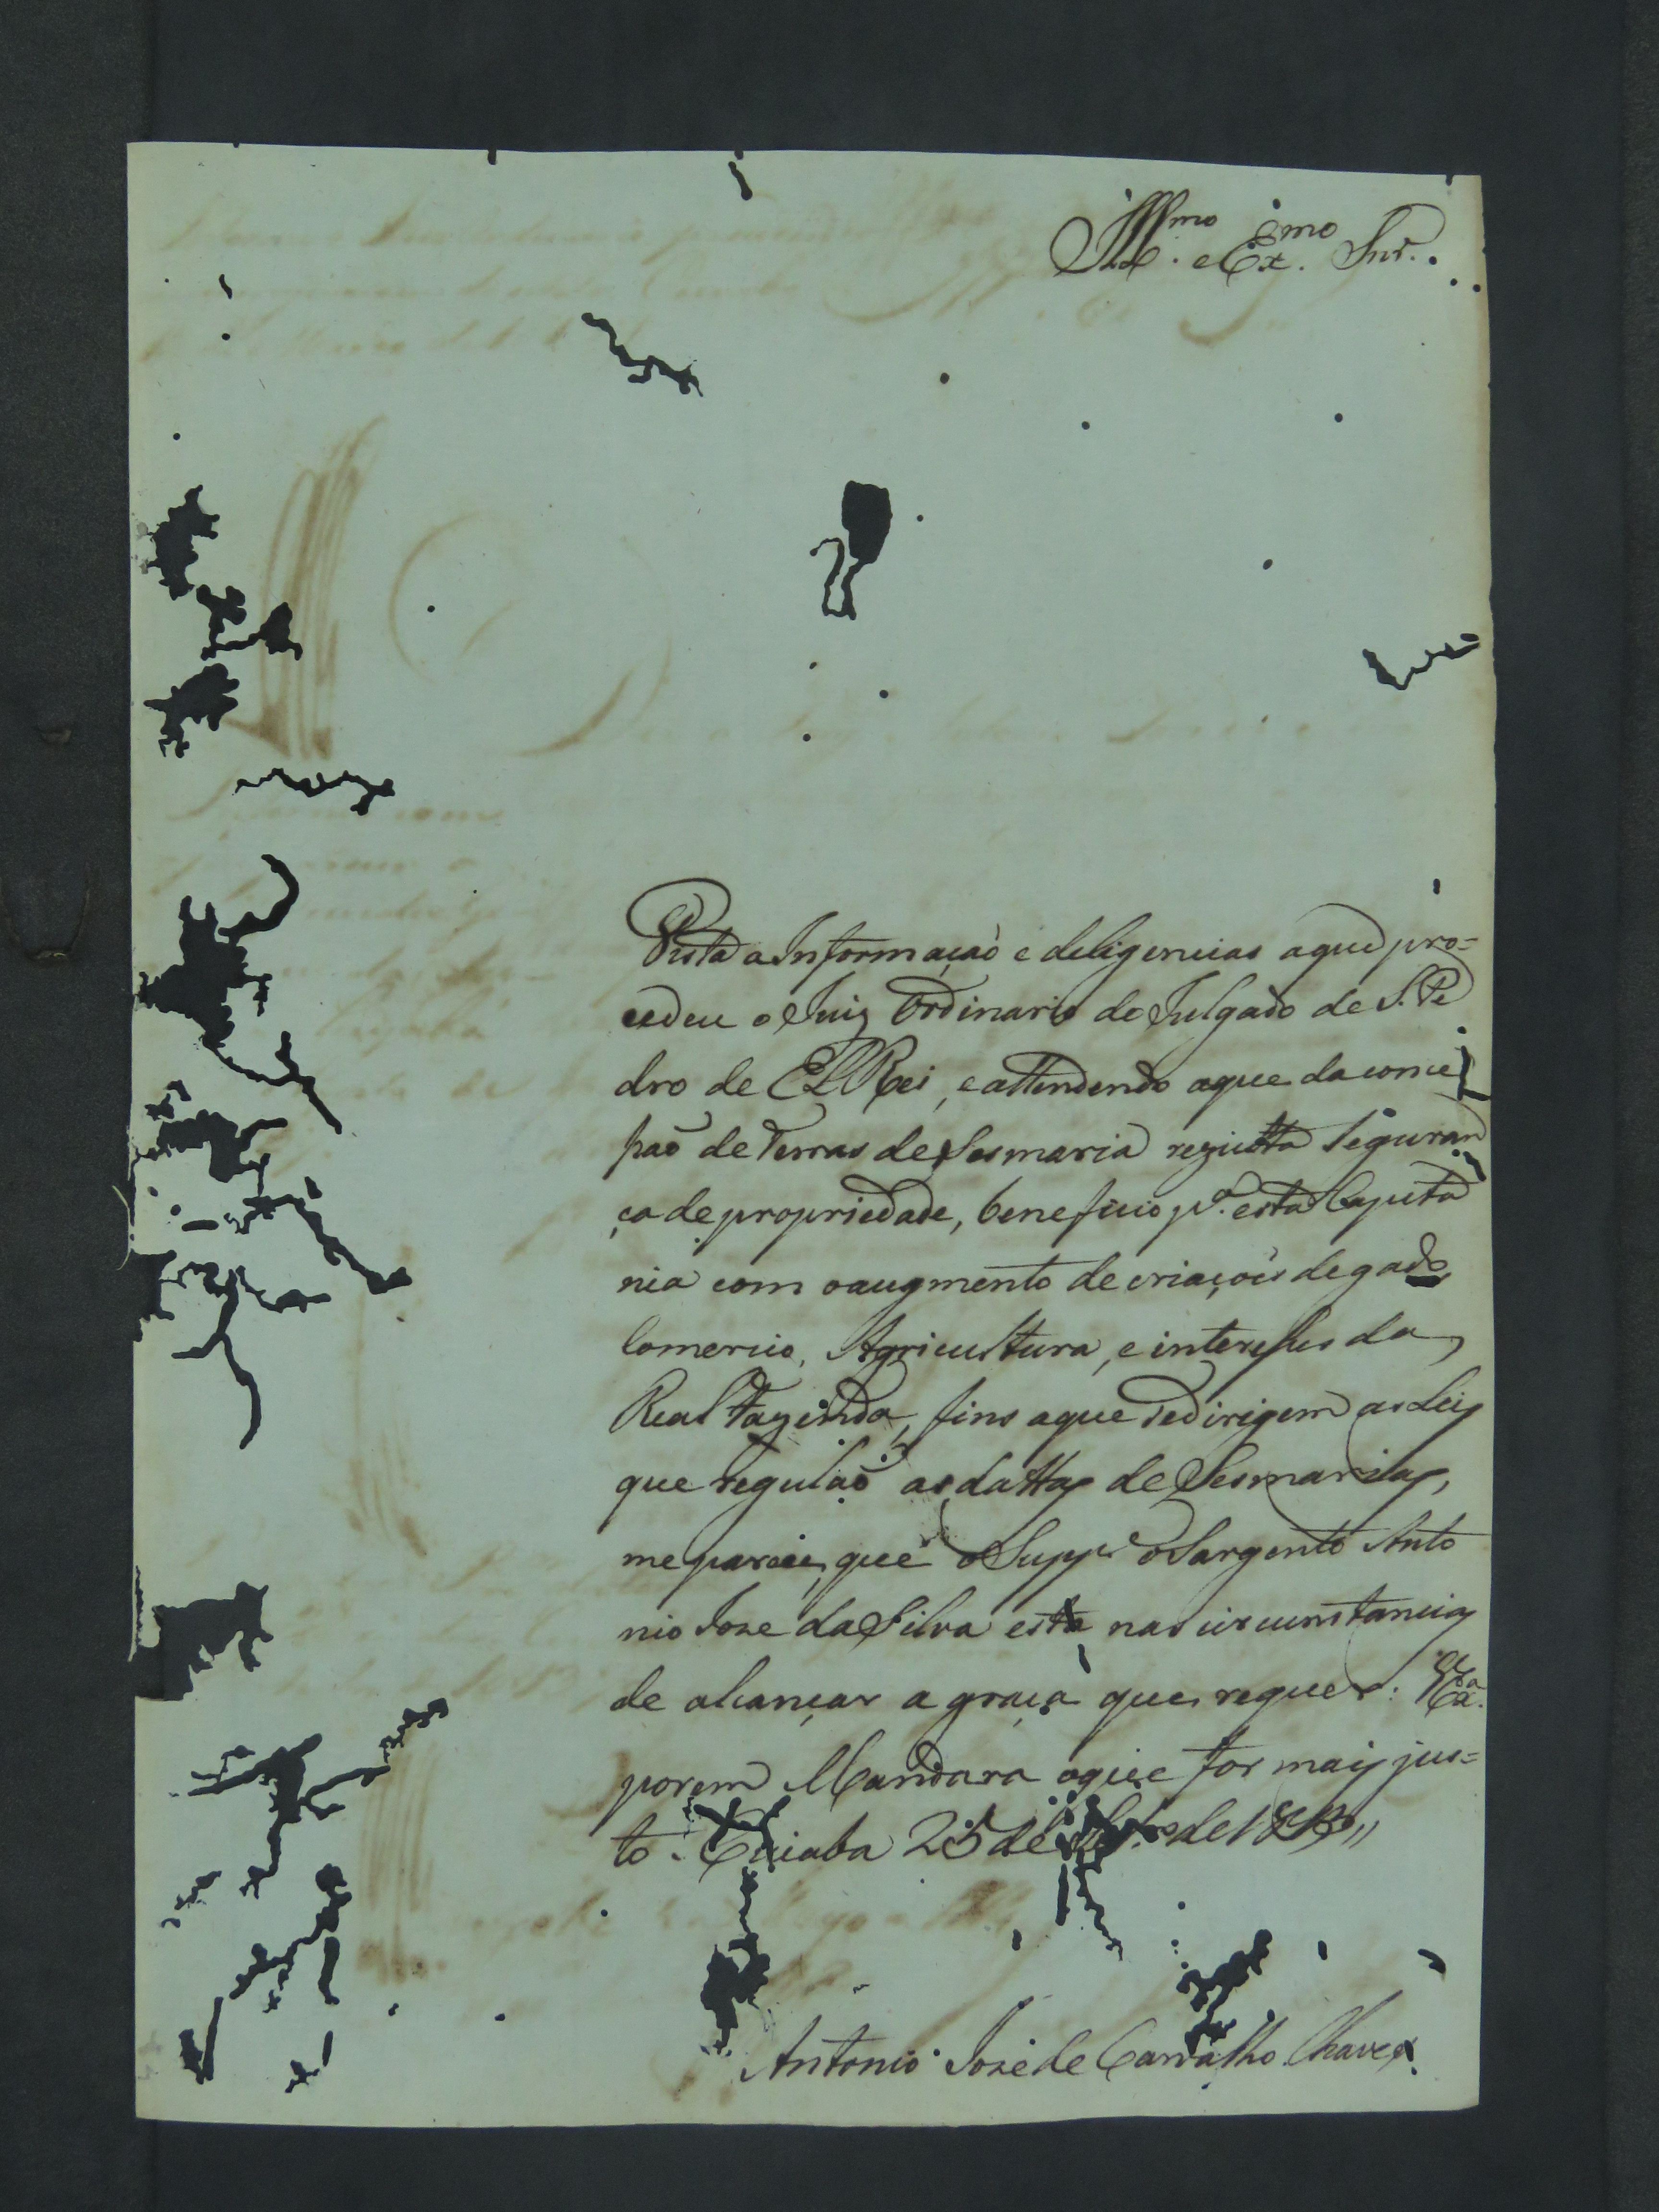 Ill.mo e Ex.mo Snr.
Vista a Informação e deligencias aque pro=
cedeu o Juiz Ordinario do Julgado de S. Pe
dro de El Rei, e attendendo aque da conce
ssaõ de Terras de Sesmaria rezulta seguran
ça de propriedade, beneficio p.a esta Capita
nia com o augmento de criaçoẽs de gado,
Comercio, Agricultura, e interesses da
Real Fazenda, fins aque se dirigem as Leis
que regulaõ as dattas de Sesmarias,
me parece, que o Supp.e o Sargento Anto
nio Joze da Silva está nas circunstancias
de alcançar a graça que requer: V. Ex.a
porem Mandara oque for mais jus=
to. Cuiaba 25 de de
Antonio Jozé de Carvalho Chaves